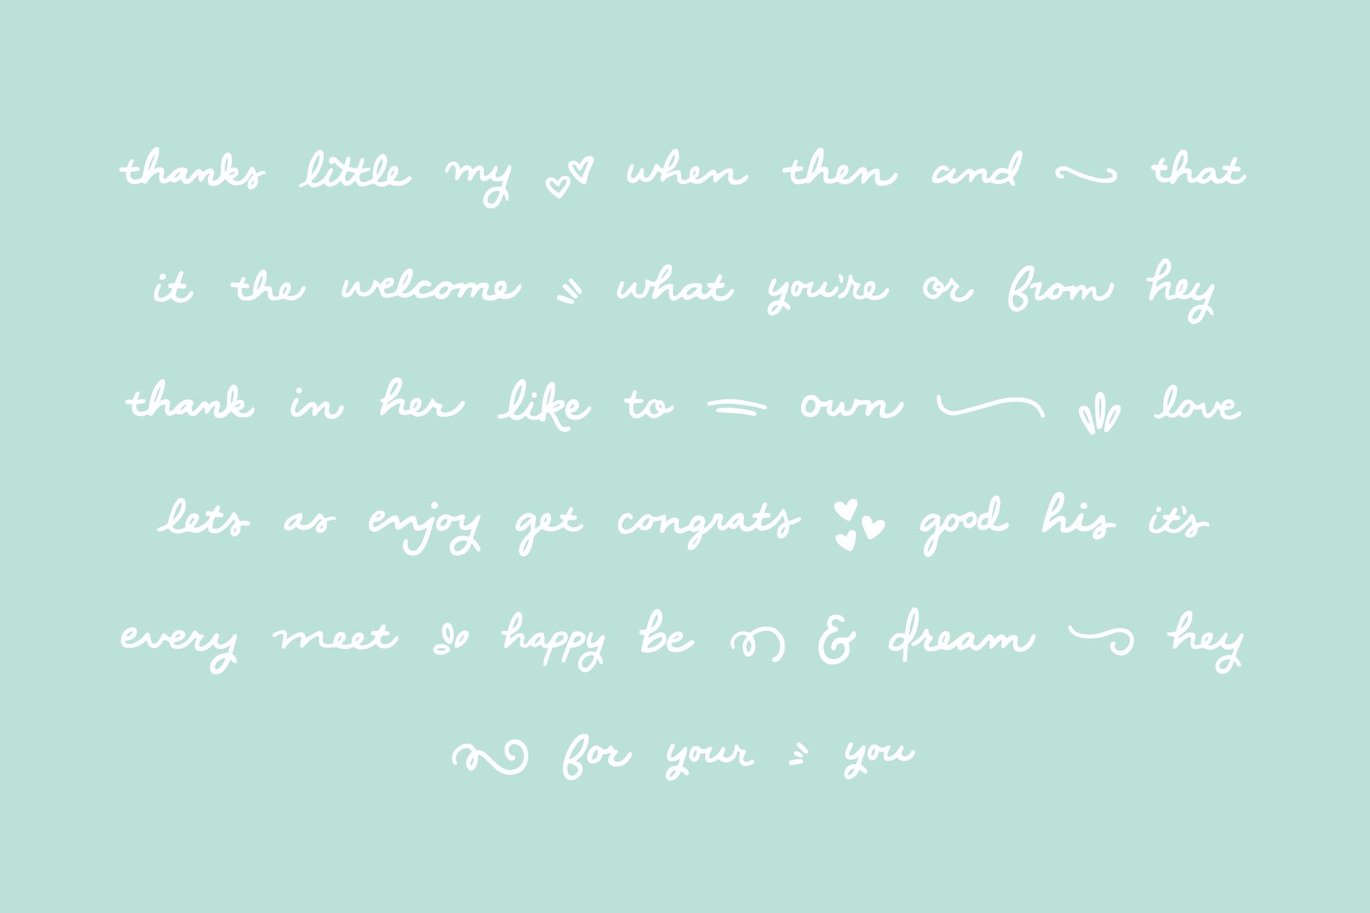 thanks little my when then and that
it the welcome what you're or from hey
thank in her like to own love
lets as enjoy get congrats good his it's
every meet happy be & dream hey
for your you